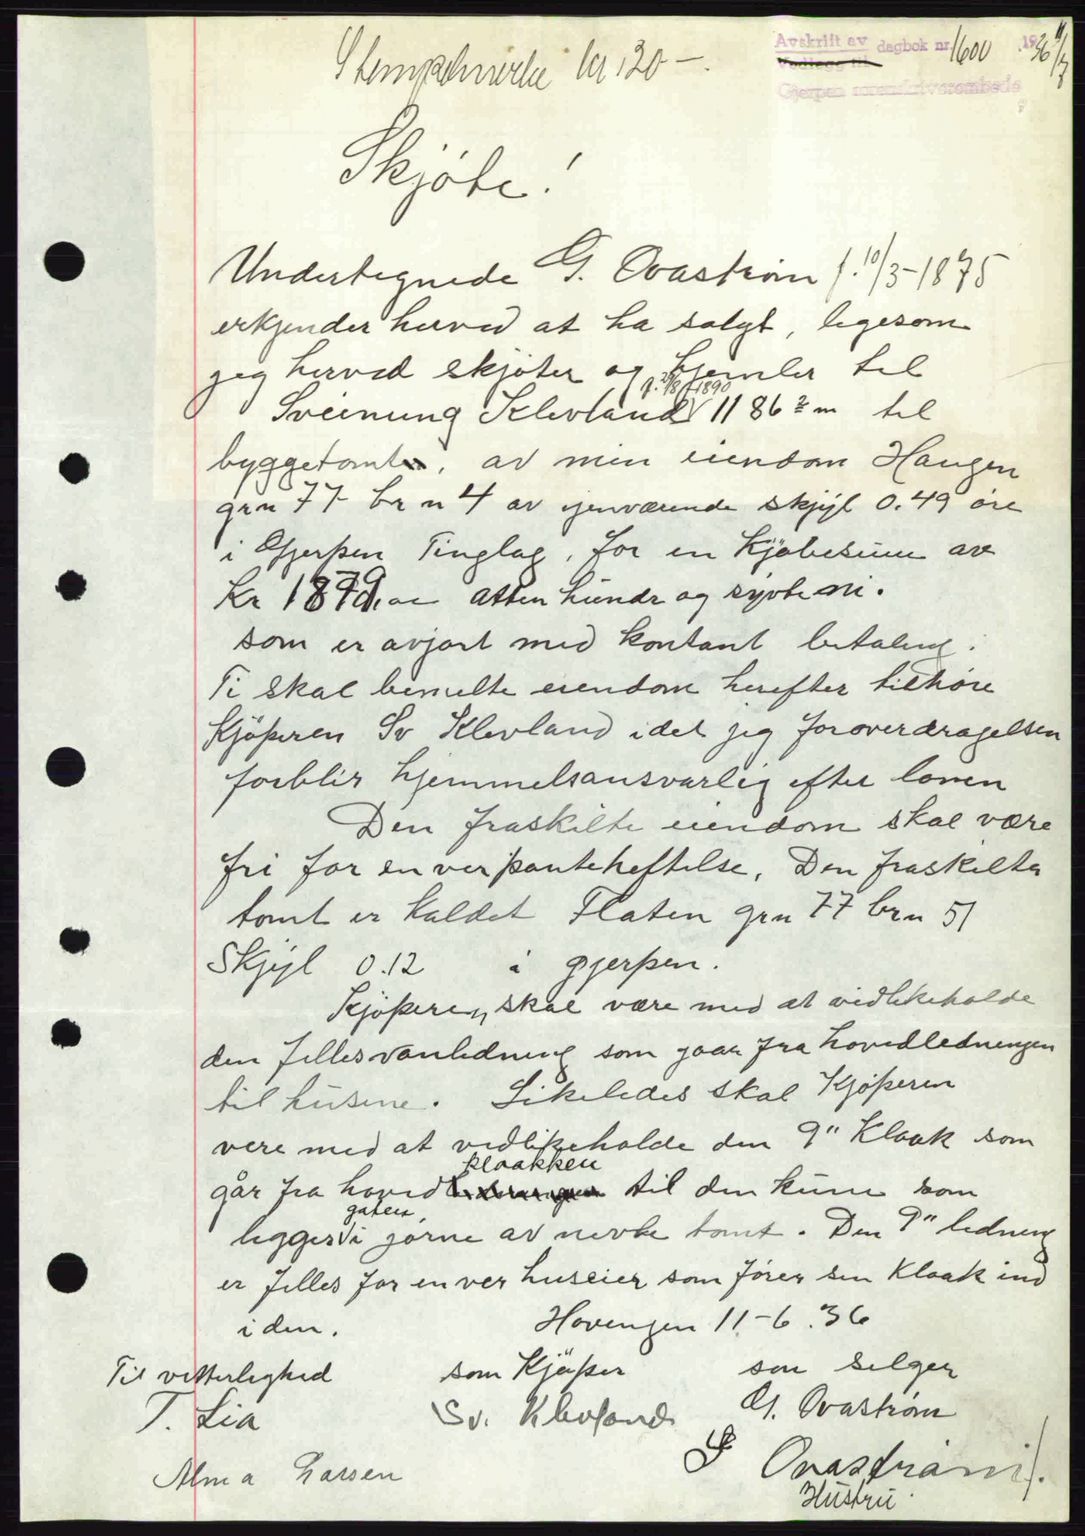 Stempelmerke kr 20 -.
Avskrift av dagbok nr. 1600 1936 11/7
Vedlegg nr.
Gjerpen sorenskriverembede
Skjöte!
Undertegnede G. Ovastrøm f. 10/3-1875
erkjender herved at ha solgt, ligesom
jeg herved skjøter og hjemler til
Sveinung Klevland 1186 2 m til
byggetomt, av min eiendom Haugen
grn 77 br n 4 av gjenværende skjyl 0.49 öre
i Gjerpen Tinglag, for en Kjøbesum av
Kr 1879, atten hundr og syvti ni.
som er avgjort med kontant betaling.
Ti skal bemelte eiendom herefter tilhøre
Kjöperen Sv Klevland idet jeg for overdragelsen
forblir hjemmelsansvarlig efter loven
Den fraskilte eiendom skal være
fri for en ver panteheftelse. Den fraskilte
tomt er kaldet Flaten grn 77 brn 51
Skjyl 0.12 i gjerpen.
Kjöperen skal være med at vedlikeholde
den felles vanledning som gaar fra hovedledningen
til husene. Likeledes skal Kjöperen
vere med at vedlikeholde den 9" Kloak som
klaakken
går fra hoved til den kum som
gaten
legges i jørne av nevte tomt. Den 9" ledning
er felles for en ver huseier som fører sin Kloak ind
i den. Hovengen 11-6.36
Til vitterlighed som Kjöper som selger
T. Lia Sv. Klevland G. Ovastrøm
Alma Larsen Ovastrøm
Hustru.